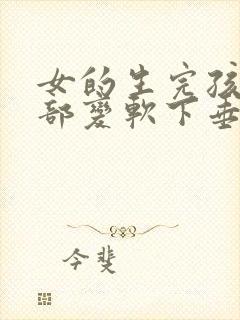 女的生完孩
部變軟下垂
今斐